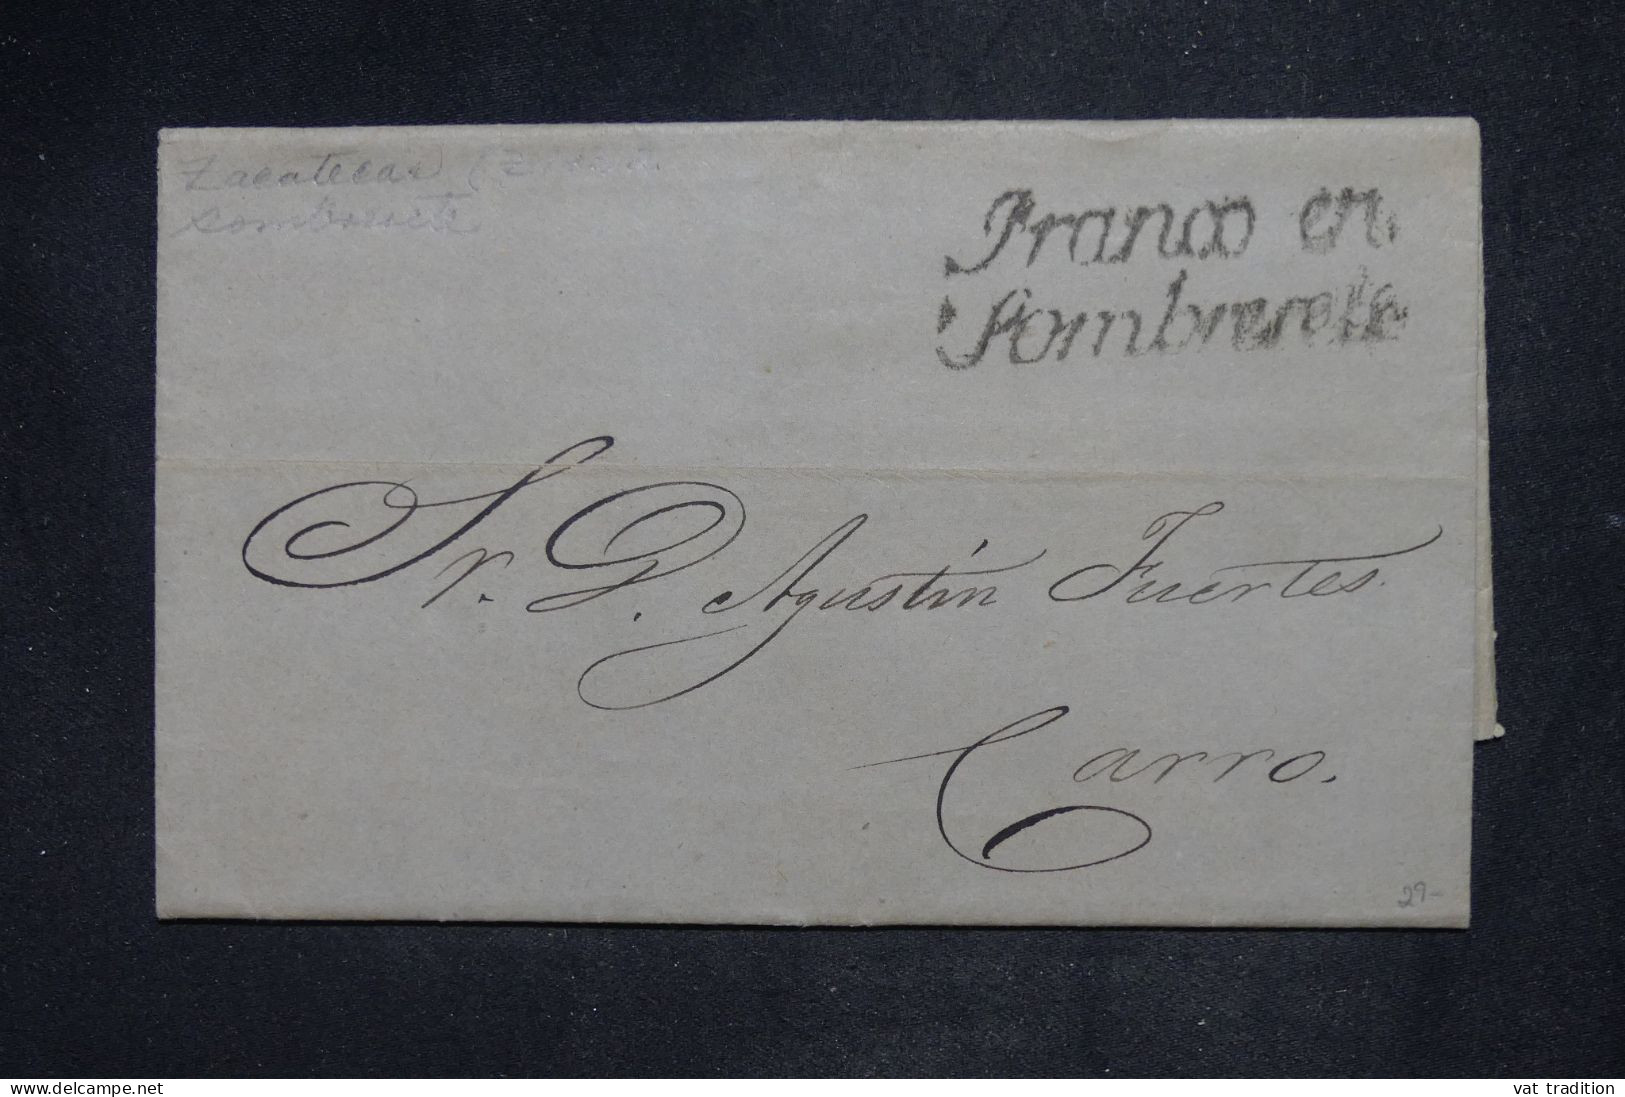 Zacatecas
Sombrerete
Franco en
Sombrerete
Sr. D. Agustín Fuertes.
Carro.
29-
www.delcampe.net
vat tradition